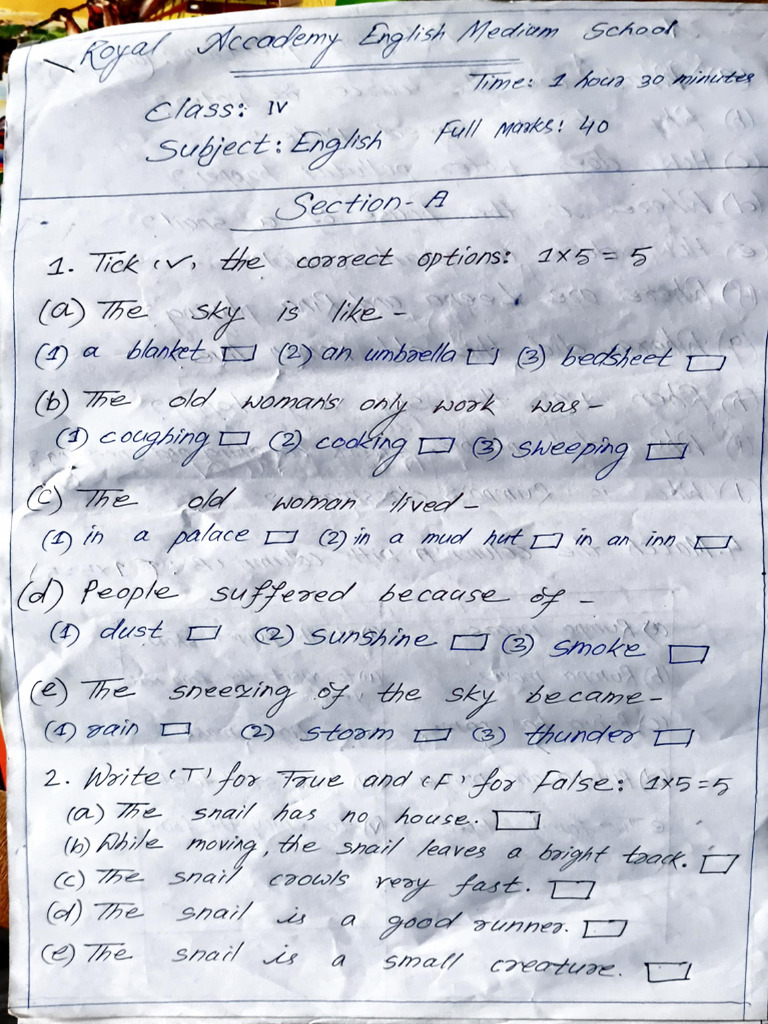 Royal Accademy English Mediam School
Time: 1 hour 30 minutes
Class: IV
Full Marks: 40
Subject: English
Section-A
1. Tick (✓) the correct options: 1x5=5
(a) The sky is like -
(1) a blanket ▭ (2) an umbrella ▭ (3) bedsheet ▭
(b) The old woman's only work was -
(1) coughing ▭ (2) cooking ▭ (3) sweeping ▭
(c) The old woman lived -
(1) in a palace ▭ (2) in a mud hut ▭ in an inn ▭
(d) People suffered because of -
(1) dust ▭ (2) sunshine ▭ (3) smoke ▭
(e) The sneezing of the sky became -
(1) rain ▭ (2) storm ▭ (3) thunder ▭
2. Write 'T' for True and 'F' for False: 1x5=5
(a) The snail has no house. ▭
(b) While moving, the snail leaves a bright track. ▭
(c) The snail crowls very fast. ▭
(d) The snail is a good runner. ▭
(e) The snail is a small creature. ▭